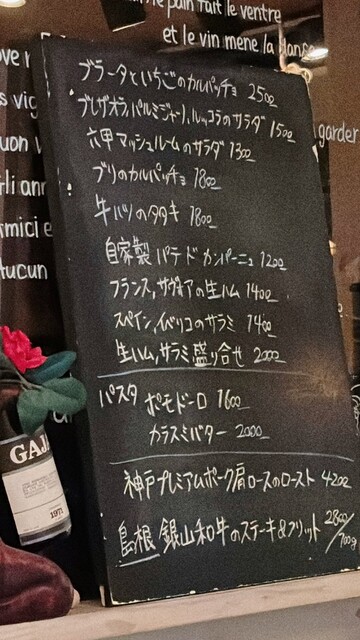 le pain fait le ventre
et le vin mène la danse
ブラータといちごのカルパッチョ 2500
ブレザオラ,パルミジャーノ,ルッコラのサラダ 1500
六甲マッシュルームのサラダ 1300
ブリのカルパッチョ 1800
牛ハツのタタキ 1800
自家製 パテ ド カンパーニュ 1200
フランス,サヴォアの生ハム 1400
スペイン,イベリコのサラミ 1400
生ハム,サラミ盛り合せ 2000
パスタ ポモドーロ 1600
カラスミバター 2000
神戸プレミアムポーク肩ロースのロースト 4200
島根 銀山和牛のステーキ&フリット 2800/100g
garder
amici e
GAJA
1971